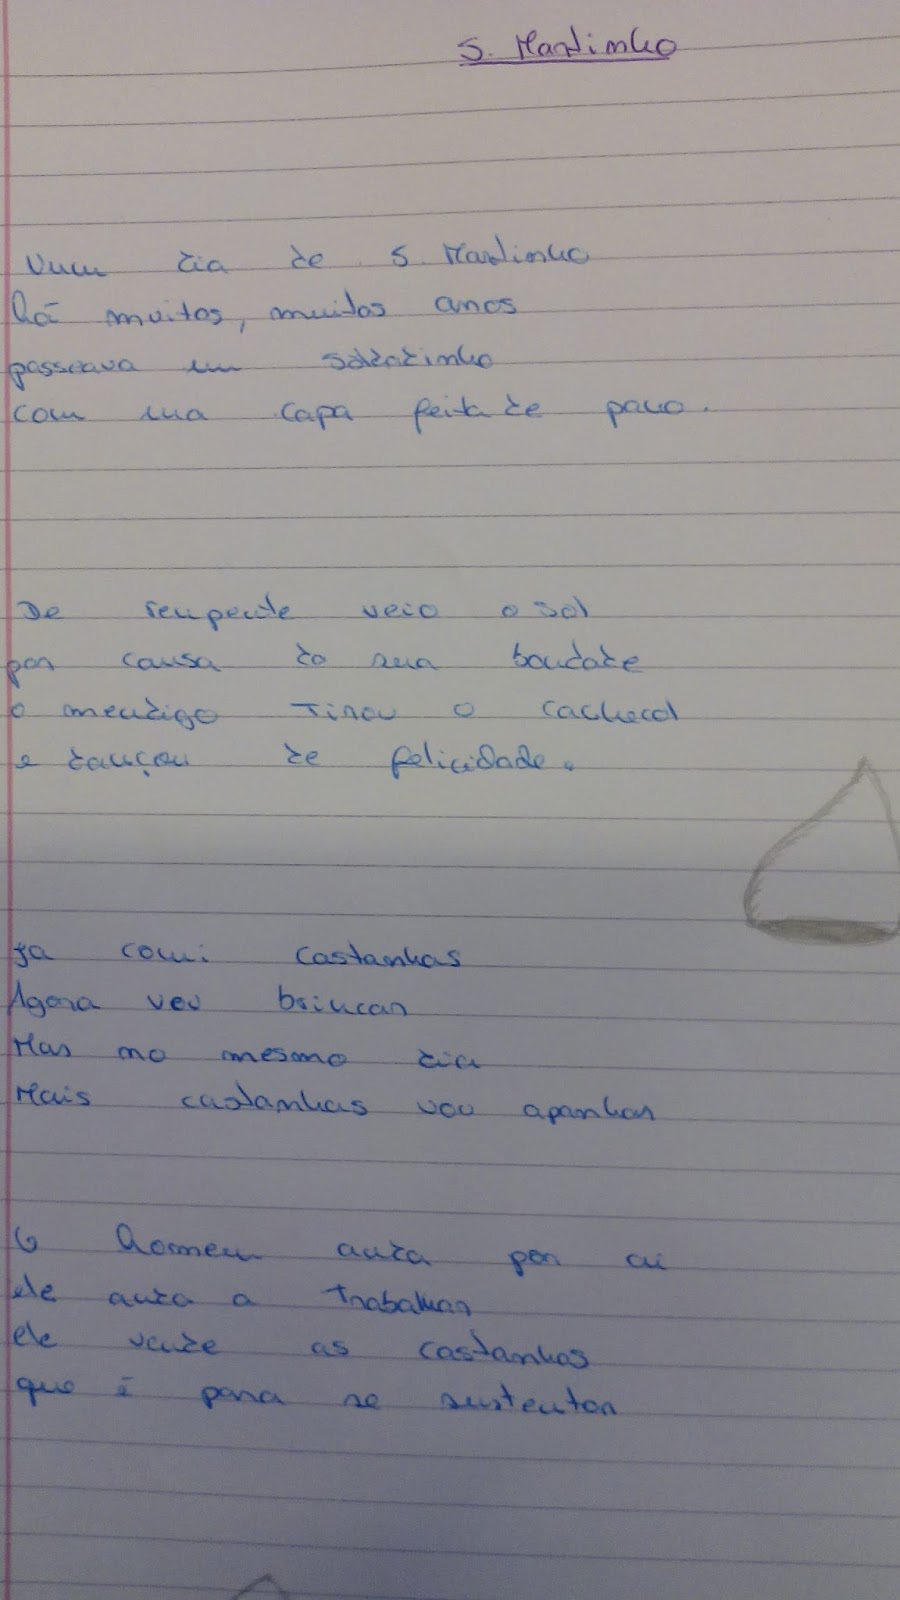 S. Martinho
Num dia de S. Martinho
há muitos, muitos anos
passeava um soldadinho
com sua capa feita de pano.
De reupente veio o sol
por causa da sua bondade
o mendigo Tirou o cachecol
e dançou de felicidade.
Ja comi castanhas
Agora vou brincar
Mas no mesmo dia
Mais castanhas vou apanhar
O homem anda por ai
ele anda a Trabalhar
ele vende as castanhas
que é para se sustentar